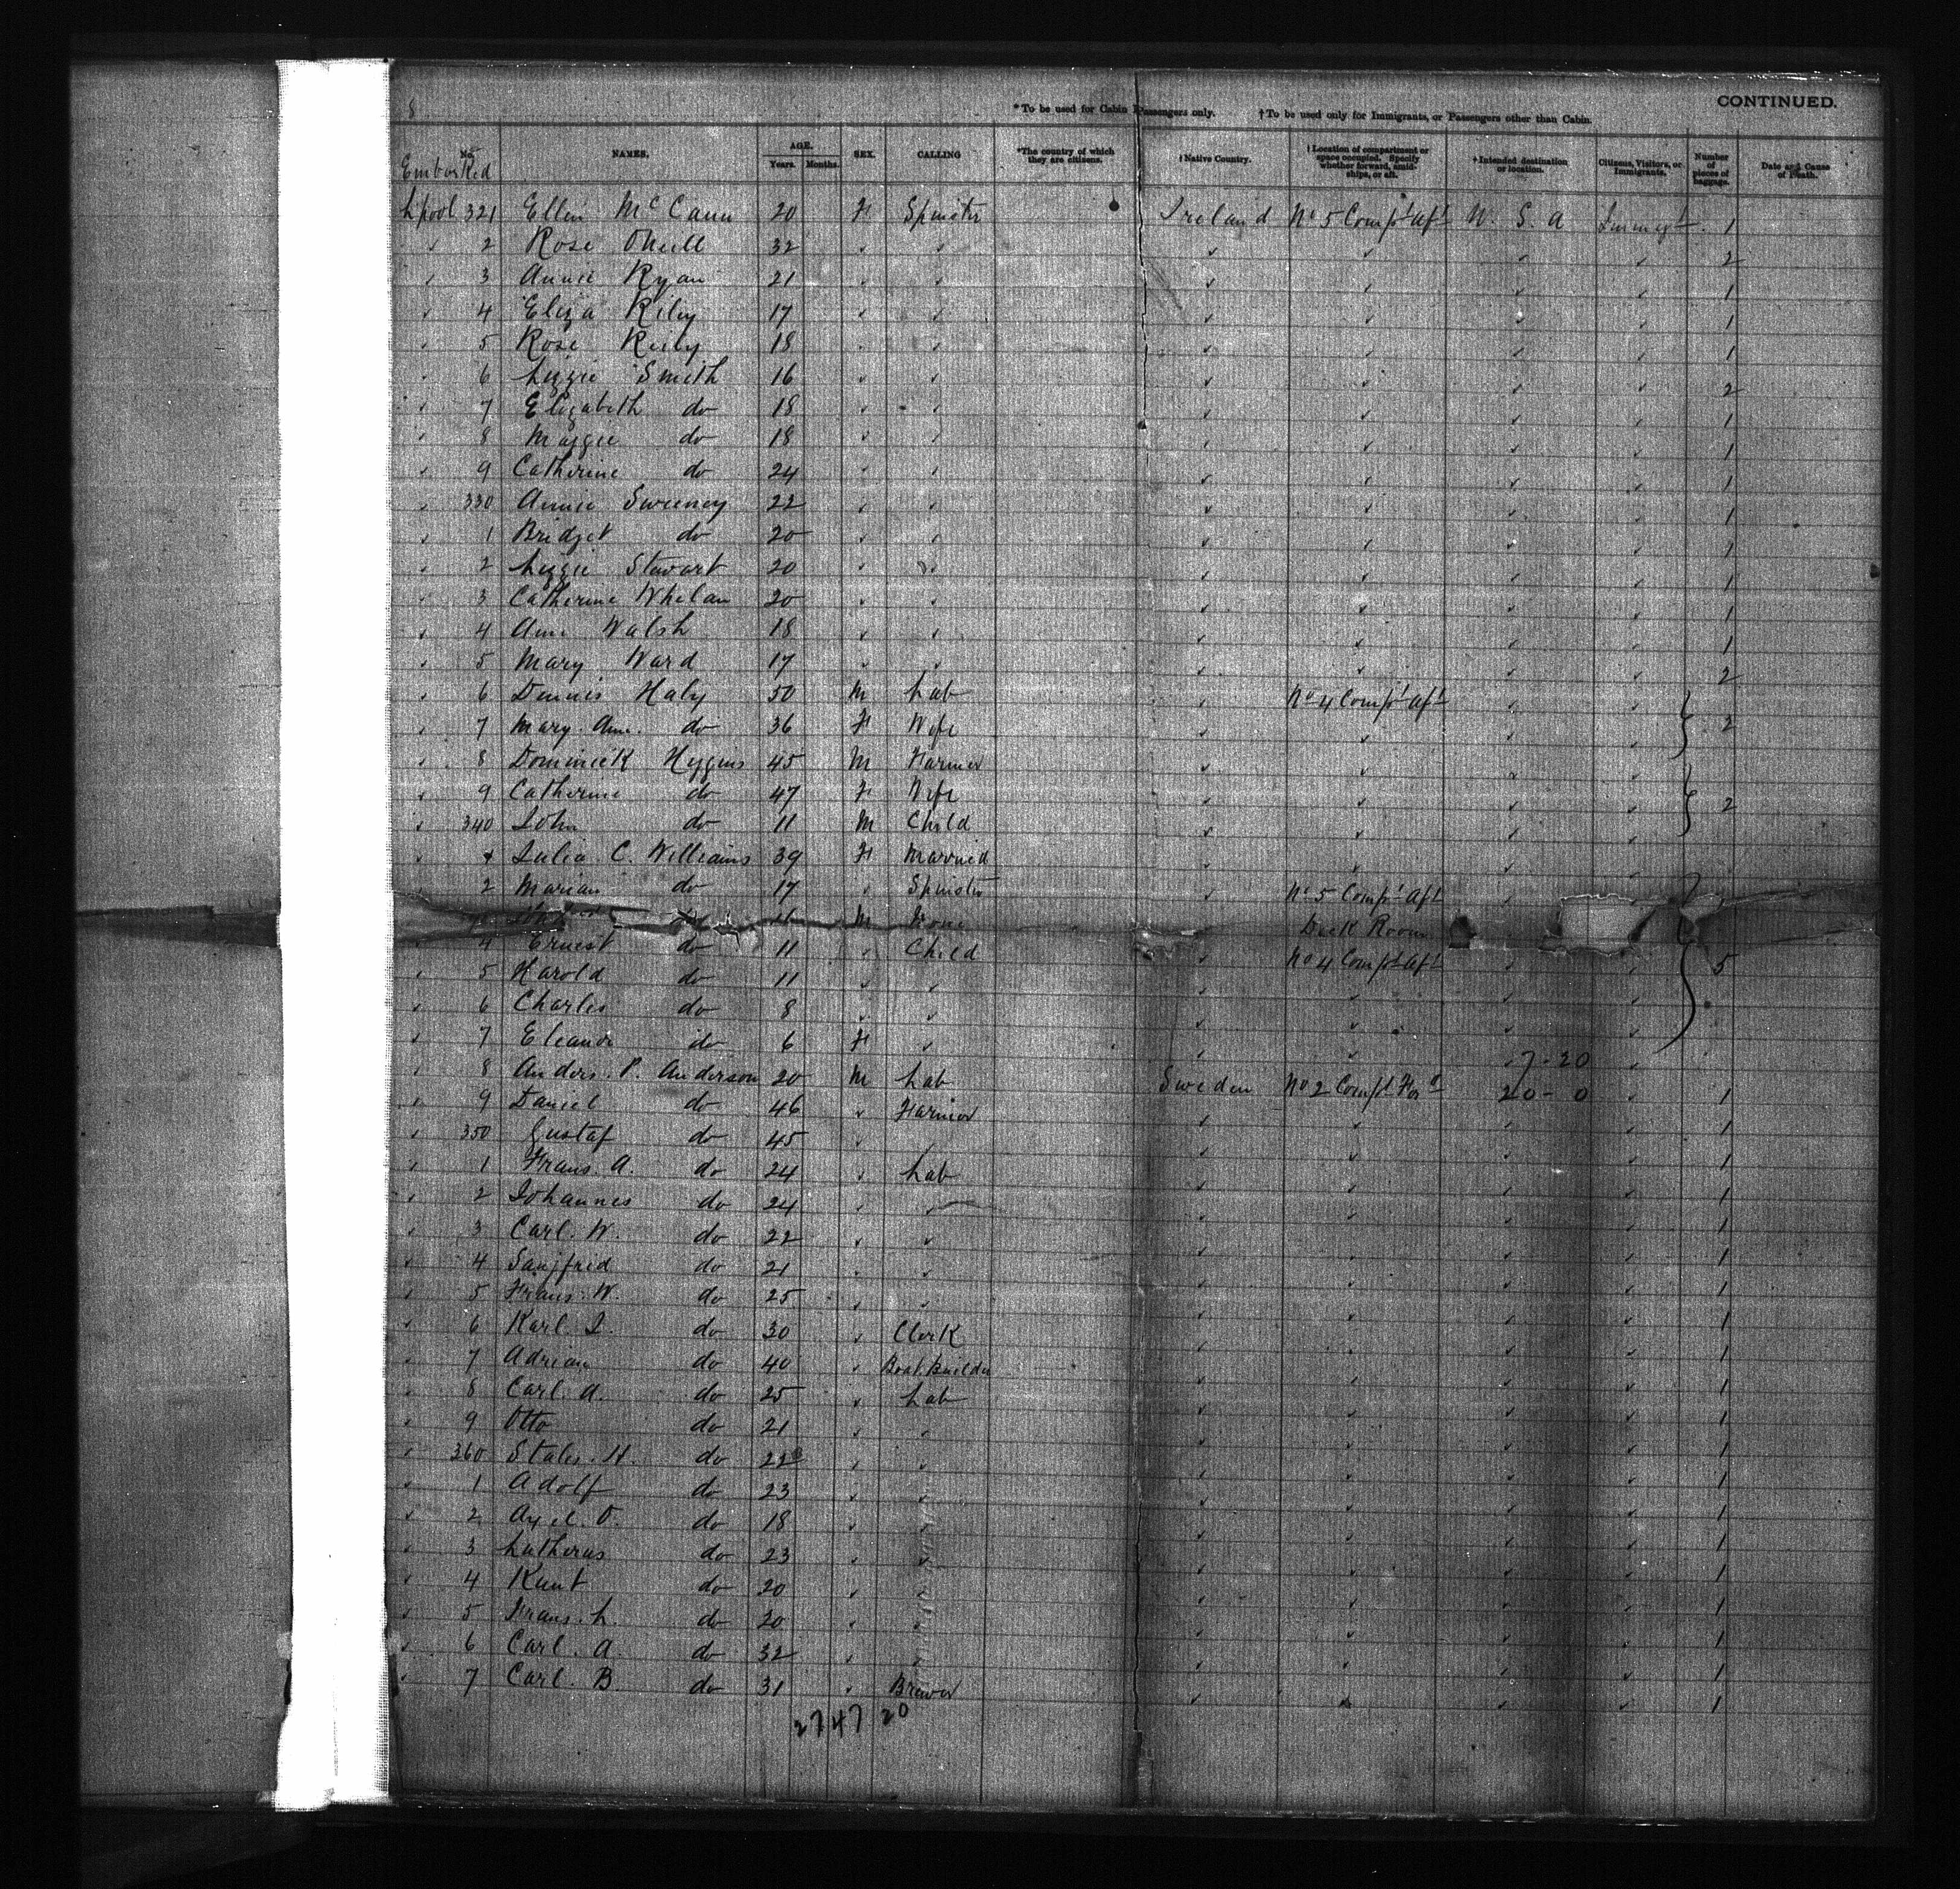 8
CONTINUED.
*To be used for Cabin Passengers only. †To be used only for Immigrants, or Passengers other than Cabin.
No. Embarked NAMES. AGE. Years. Months. SEX. CALLING *The country of which they are citizens. †Native Country. †Location of compartment or space occupied. Specify whether forward, amidships, or aft. †Intended destination or location. Citizens, Visitors, or Immigrants. Number of pieces of baggage. Date and Cause of Death.
L'pool 321 Ellen McCann 20 F Spinster Ireland No 5 Compt Aft U. S. A Immigt 1
✓ 2 Rose ONeill 32 ✓ ✓ ✓ ✓ ✓ ✓ 2
✓ 3 Annie Ryan 21 ✓ ✓ ✓ ✓ ✓ ✓ 1
✓ 4 Eliza Riley 17 ✓ ✓ ✓ ✓ ✓ ✓ 1
✓ 5 Rose Reily 18 ✓ ✓ ✓ ✓ ✓ ✓ 1
✓ 6 Lizzie Smith 16 ✓ ✓ ✓ ✓ ✓ ✓ 2
✓ 7 Elizabeth do 18 ✓ ✓ ✓ ✓ ✓ ✓ 1
✓ 8 Maggie do 18 ✓ ✓ ✓ ✓ ✓ ✓ 1
✓ 9 Catherine do 24 ✓ ✓ ✓ ✓ ✓ ✓ 1
✓ 330 Annie Sweeney 22 ✓ ✓ ✓ ✓ ✓ ✓ 1
✓ 1 Bridget do 20 ✓ ✓ ✓ ✓ ✓ ✓ 1
✓ 2 Lizzie Stewart 20 ✓ ✓ ✓ ✓ ✓ ✓ 1
✓ 3 Catherine Whelan 20 ✓ ✓ ✓ ✓ ✓ ✓ 1
✓ 4 Ann Walsh 18 ✓ ✓ ✓ ✓ ✓ ✓ 1
✓ 5 Mary Ward 17 ✓ ✓ ✓ ✓ ✓ ✓ 2
✓ 6 Dennis Haly 50 M Lab ✓ No 4 Compt Aft ✓ ✓
✓ 7 Mary Ann do 36 F Wife ✓ ✓ ✓ ✓ 2
✓ 8 Dominick Higgins 45 M Farmer ✓ ✓ ✓ ✓
✓ 9 Catherine do 47 F Wife ✓ ✓ ✓ ✓ 2
✓ 340 John do 11 M Child ✓ ✓ ✓ ✓
✓ 1 Julia C. Williams 39 F Married ✓ ✓ ✓ ✓
✓ 2 Marian do 17 ✓ Spinster ✓ No 5 Compt Aft ✓
do M None Deck Room
✓ 4 Ernest do 11 ✓ Child ✓ No 4 Compt Aft ✓ ✓ 5
✓ 5 Harold do 11 ✓ ✓ ✓ ✓ ✓ ✓
✓ 6 Charles do 8 ✓ ✓ ✓ ✓ ✓ ✓
✓ 7 Eleanor do 6 F ✓ ✓ ✓ 7-20 ✓
✓ 8 Anders. P. Anderson 20 M Lab Sweden No 2 Compt For'd 20-0 ✓ 1
✓ 9 Daniel do 46 ✓ Farmer ✓ ✓ ✓ ✓ 1
✓ 350 Gustaf do 45 ✓ ✓ ✓ ✓ ✓ ✓ 1
✓ 1 Frans. A. do 24 ✓ Lab ✓ ✓ ✓ ✓ 1
✓ 2 Johannes do 24 ✓ ✓ ✓ ✓ ✓ ✓ 1
✓ 3 Carl. W. do 22 ✓ ✓ ✓ ✓ ✓ ✓ 1
✓ 4 do 21 ✓ ✓ ✓ ✓ ✓ ✓ 1
✓ 5 Frans. W. do 25 ✓ ✓ ✓ ✓ ✓ ✓ 1
✓ 6 Karl. J. do 30 ✓ Clerk ✓ ✓ ✓ ✓ 1
✓ 7 Adrian do 40 ✓ Boat Builder ✓ ✓ ✓ ✓ 1
✓ 8 Carl. A. do 25 ✓ Lab ✓ ✓ ✓ ✓ 1
✓ 9 Otto do 21 ✓ ✓ ✓ ✓ ✓ ✓ 1
✓ 360 H. do 22 ✓ ✓ ✓ ✓ ✓ ✓ 1
✓ 1 Adolf do 23 ✓ ✓ ✓ ✓ ✓ ✓ 1
✓ 2 Axel. O. do 18 ✓ ✓ ✓ ✓ ✓ ✓ 1
✓ 3 Lutherus do 23 ✓ ✓ ✓ ✓ ✓ ✓ 1
✓ 4 Knut do 20 ✓ ✓ ✓ ✓ ✓ ✓ 1
✓ 5 Frans. L. do 20 ✓ ✓ ✓ ✓ ✓ ✓ 1
✓ 6 Carl. A. do 32 ✓ ✓ ✓ ✓ ✓ ✓ 1
✓ 7 Carl. B. do 31 ✓ Brewer ✓ ✓ ✓ ✓ 1
27 47 20